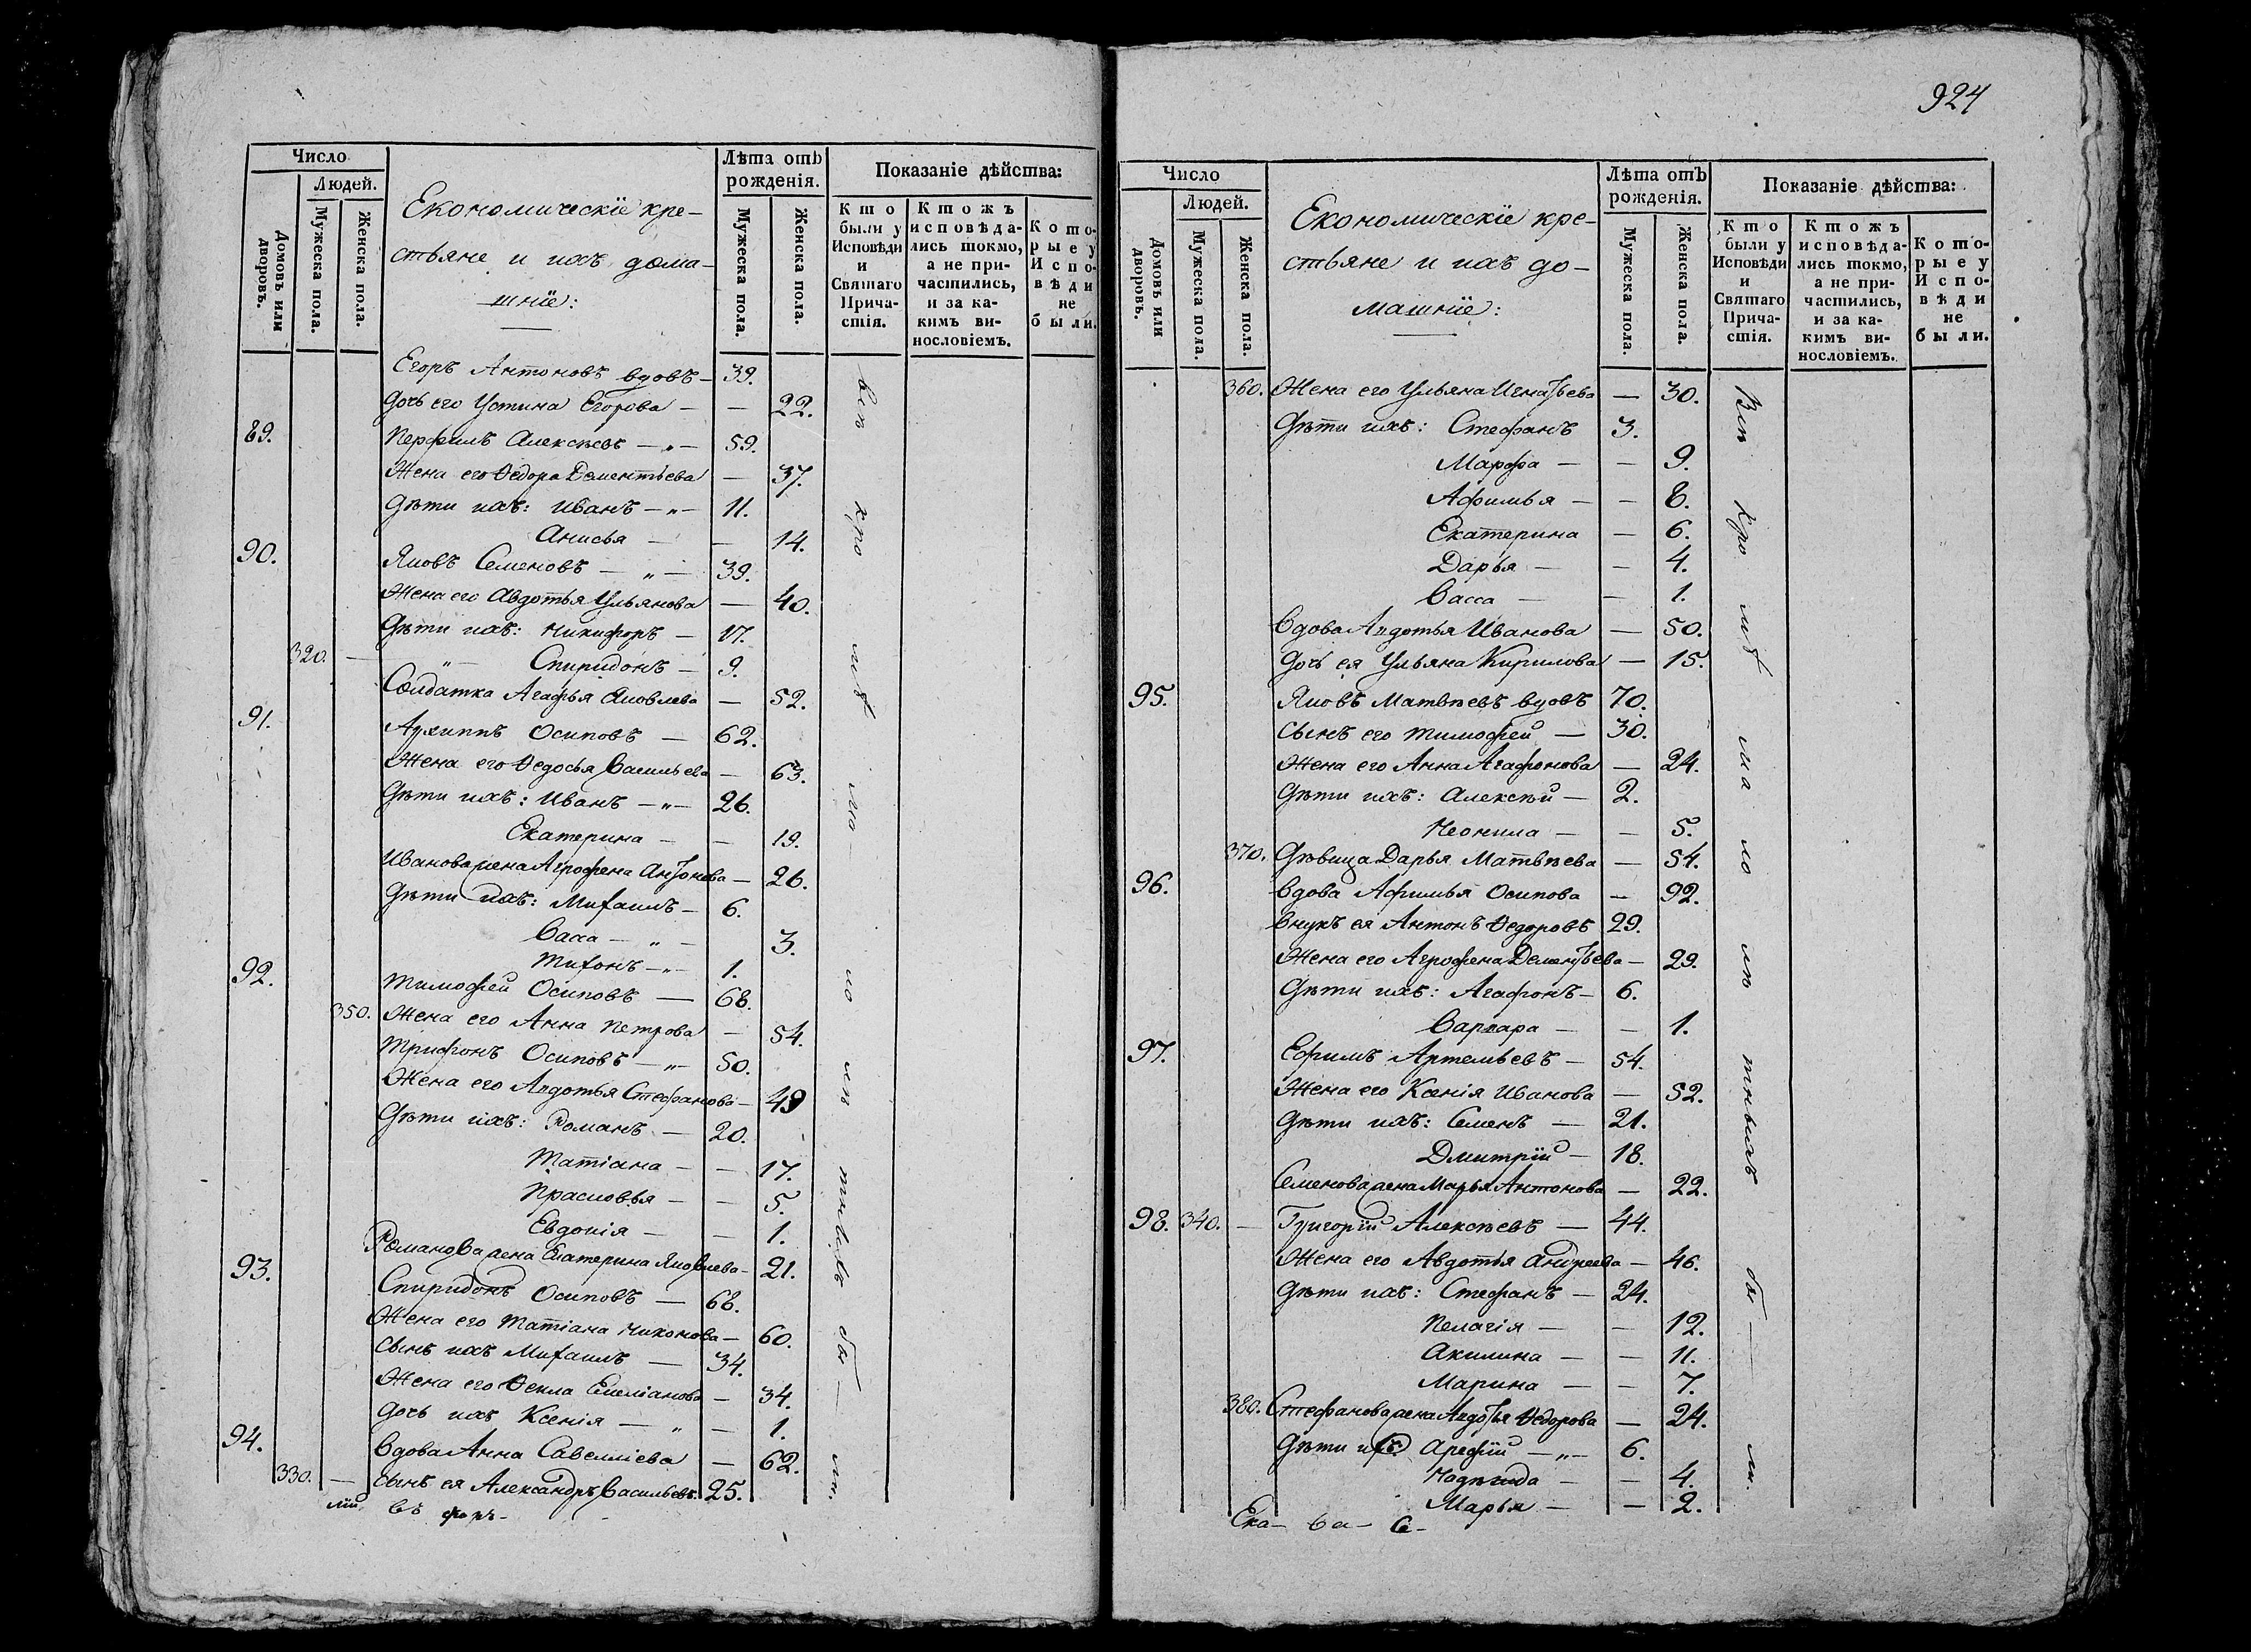 924
Число
Людей.
Домовъ или дворовъ.
Мужеска пола.
Женска пола.
Економическіе кре-
стьяне и ихъ дома-
шніе:
Лѣта отъ
рожденія.
Мужеска пола.
Женска пола.
Показаніе дѣйства:
Кто
были у
Исповѣди
и
Святаго
Прича-
стія.
Ктожъ
исповѣда-
лись токмо,
а не при-
частились,
и за ка-
кимъ ви-
нословіемъ.
Кото-
рые у
Испо-
вѣди
не
были.
Егоръ Антоновъ вдовъ — 39.
Дочь его Устина Егорова — — 22.
89. Перфилъ Алексѣевъ — „ — 59.
Жена его Ѳедора Дементьева — 37.
Дѣти ихъ: Иванъ — „ — 11.
Анисья — — 14.
90. Яковъ Семеновъ — „ — 39.
Жена его Авдотья Ульянова — 40.
Дѣти ихъ: Никифоръ — 17.
320. — „ — Спиридонъ — 9.
Солдатка Агафья Яковлева — 52.
91. Архиппъ Осиповъ — 62.
Жена его Ѳедосья Васильева — 63.
Дѣти ихъ: Иванъ — „ — 26.
Екатерина — — 19.
Иванова жена Агрофена Антонова — 26.
Дѣти ихъ: Михаилъ — 6.
Васса — „ — 3.
Тихонъ — „ — 1.
92. Тимофей Осиповъ — 68.
350. Жена его Анна Петрова — 54.
Трифонъ Осиповъ — „ — 50.
Жена его Авдотья Стефанова — 49
Дѣти ихъ: Романъ — 20.
Татіана — — 17.
Прасковья — — 5.
Евдокія — — 1.
Романова жена Екатерина Яковлева — 21.
93. Спиридонъ Осиповъ — 68.
Жена его Татіана Никонова — 60.
Сынъ ихъ Михаилъ — 34.
Жена его Ѳекла Емеліанова — 34.
Дочь ихъ Ксенія — „ — 1.
94. Вдова Анна Савелліева — 62.
330. — Сынъ ея Александръ Васильевъ. 25.
въ
Число
Людей.
Домовъ или дворовъ.
Мужеска пола.
Женска пола.
Економическіе кре-
стьяне и ихъ до-
машніе:
Лѣта отъ
рожденія.
Мужеска пола.
Женска пола.
Показаніе дѣйства:
Кто
были у
Исповѣди
и
Святаго
Прича-
стія.
Ктожъ
исповѣда-
лись токмо,
а не при-
частились,
и за ка-
кимъ ви-
нословіемъ.
Кото-
рые у
Испо-
вѣди
не
были.
360. Жена его Ульяна Игнатьева — 30.
Дѣти ихъ: Стефанъ 3.
Марфа — — 9.
Афимья — — 8.
Екатерина — 6.
Дарья — — 4.
Васса — — 1.
Вдова Авдотья Иванова — 50.
Дочь ея Ульяна Кирилова — 15.
95. Яковъ Матвѣевъ вдовъ 70.
Сынъ его Тимофей — 30.
Жена его Анна Агафонова — 24.
Дѣти ихъ: Алексѣй — 2.
Неонила — — 5.
370. Дѣвица Дарья Матвѣева — 54.
96. Вдова Афимья Осипова — 92.
Внукъ ея Антонъ Ѳедоровъ 29.
Жена его Агрофена Дементьева — 29.
Дѣти ихъ: Агафонъ — 6.
Варвара — — 1.
97. Ефимъ Артемьевъ — 54.
Жена его Ксенія Иванова — 52.
Дѣти ихъ: Семенъ — 21.
Дмитрій — 18.
Семенова жена Марья Антонова — 22.
98. 340. — Григорій Алексѣевъ — 44.
Жена его Авдотья Андреева — 46.
Дѣти ихъ: Стефанъ — 24.
Пелагія — — 12.
Акилина — — 11.
Марина — — 7.
380. Стефанова жена Авдотья Ѳедорова — 24.
Дѣти ихъ: Арефій — „ — 6.
Надежда — — 4.
Марья — — 2.
Ека — ва — С —